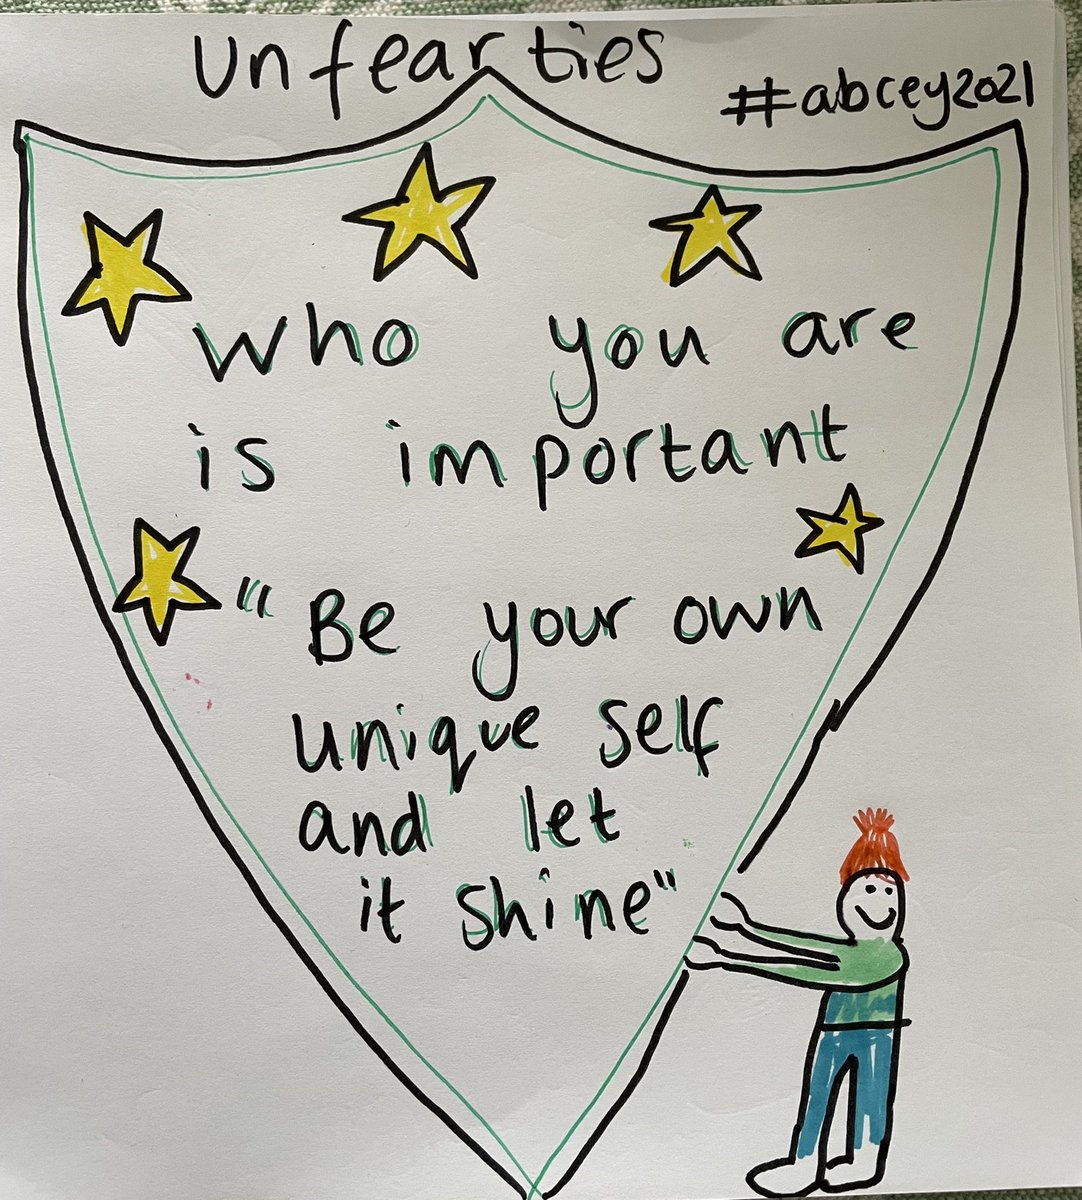 unfearties
#abcey2021
who you are
is important
"Be your own
unique self
and let
it shine"